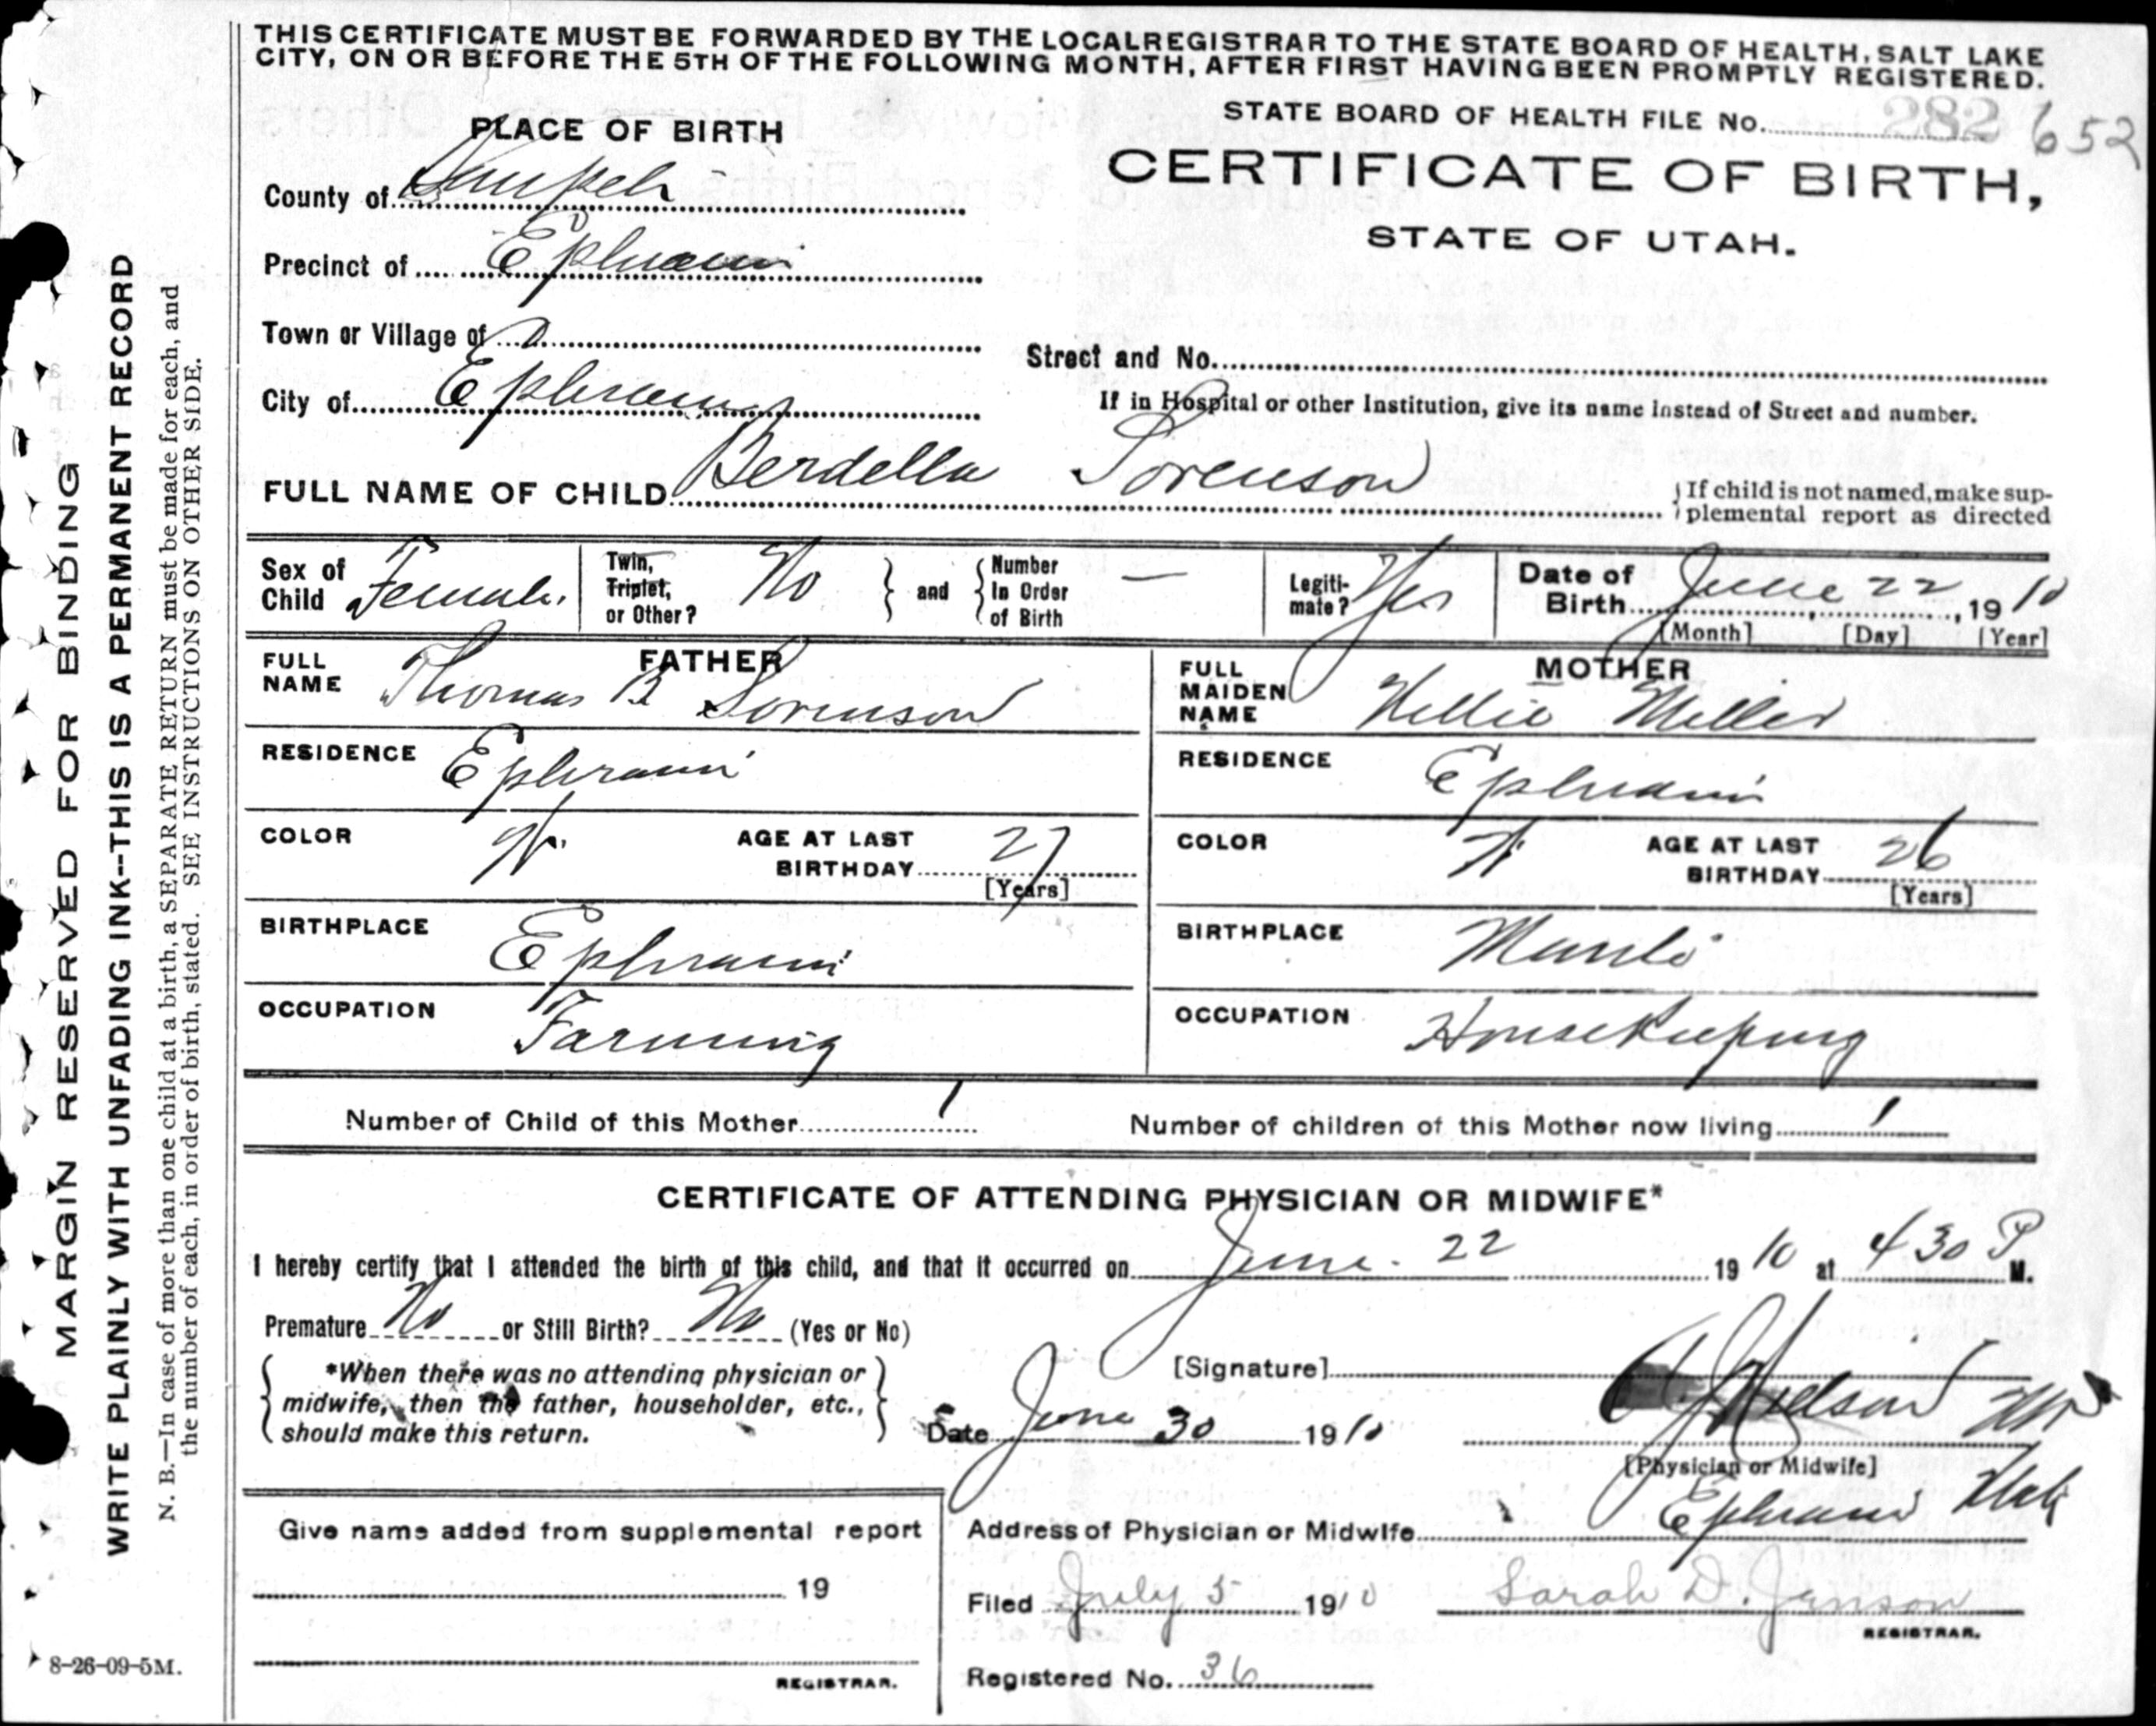 THIS CERTIFICATE MUST BE FORWARDED BY THE LOCAL REGISTRAR TO THE STATE BOARD OF HEALTH, SALT LAKE
CITY, ON OR BEFORE THE 5TH OF THE FOLLOWING MONTH, AFTER FIRST HAVING BEEN PROMPTLY REGISTERED.
STATE BOARD OF HEALTH FILE No. 282 652
PLACE OF BIRTH
CERTIFICATE OF BIRTH,
STATE OF UTAH.
County of Sanpete
Precinct of Ephraim
Town or Village of
Street and No.
City of Ephraim
If in Hospital or other Institution, give its name instead of Street and number.
FULL NAME OF CHILD Berdella Sorenson
If child is not named, make sup-
plemental report as directed
Sex of Child Female.
Twin, Triplet, or Other? No
and Number In Order of Birth —
Legiti-mate? Yes
Date of Birth June 22, 1910
[Month] [Day] [Year]
FATHER
FULL NAME Thomas B Sorenson
RESIDENCE Ephraim
COLOR W.
AGE AT LAST BIRTHDAY 27
[Years]
BIRTHPLACE Ephraim
OCCUPATION Farming
MOTHER
FULL MAIDEN NAME Nellie Miller
RESIDENCE Ephraim
COLOR W
AGE AT LAST BIRTHDAY 26
[Years]
BIRTHPLACE Manti
OCCUPATION Housekeeping
Number of Child of this Mother 1
Number of children of this Mother now living 1
CERTIFICATE OF ATTENDING PHYSICIAN OR MIDWIFE*
I hereby certify that I attended the birth of this child, and that it occurred on June. 22 1910 at 4 30 P M.
Premature No or Still Birth? No (Yes or No)
*When there was no attending physician or
midwife, then the father, householder, etc.,
should make this return.
[Signature] Nielson
Date June 30 1910
[Physician or Midwife]
Address of Physician or Midwife Ephraim Utah
Filed July 5 1910 Sarah D. Jenson
REGISTRAR.
Registered No. 36
Give name added from supplemental report
19
REGISTRAR.
MARGIN RESERVED FOR BINDING
WRITE PLAINLY WITH UNFADING INK--THIS IS A PERMANENT RECORD
N. B.—In case of more than one child at a birth, a SEPARATE RETURN must be made for each, and
the number of each, in order of birth, stated. SEE INSTRUCTIONS ON OTHER SIDE.
8-26-09-5M.